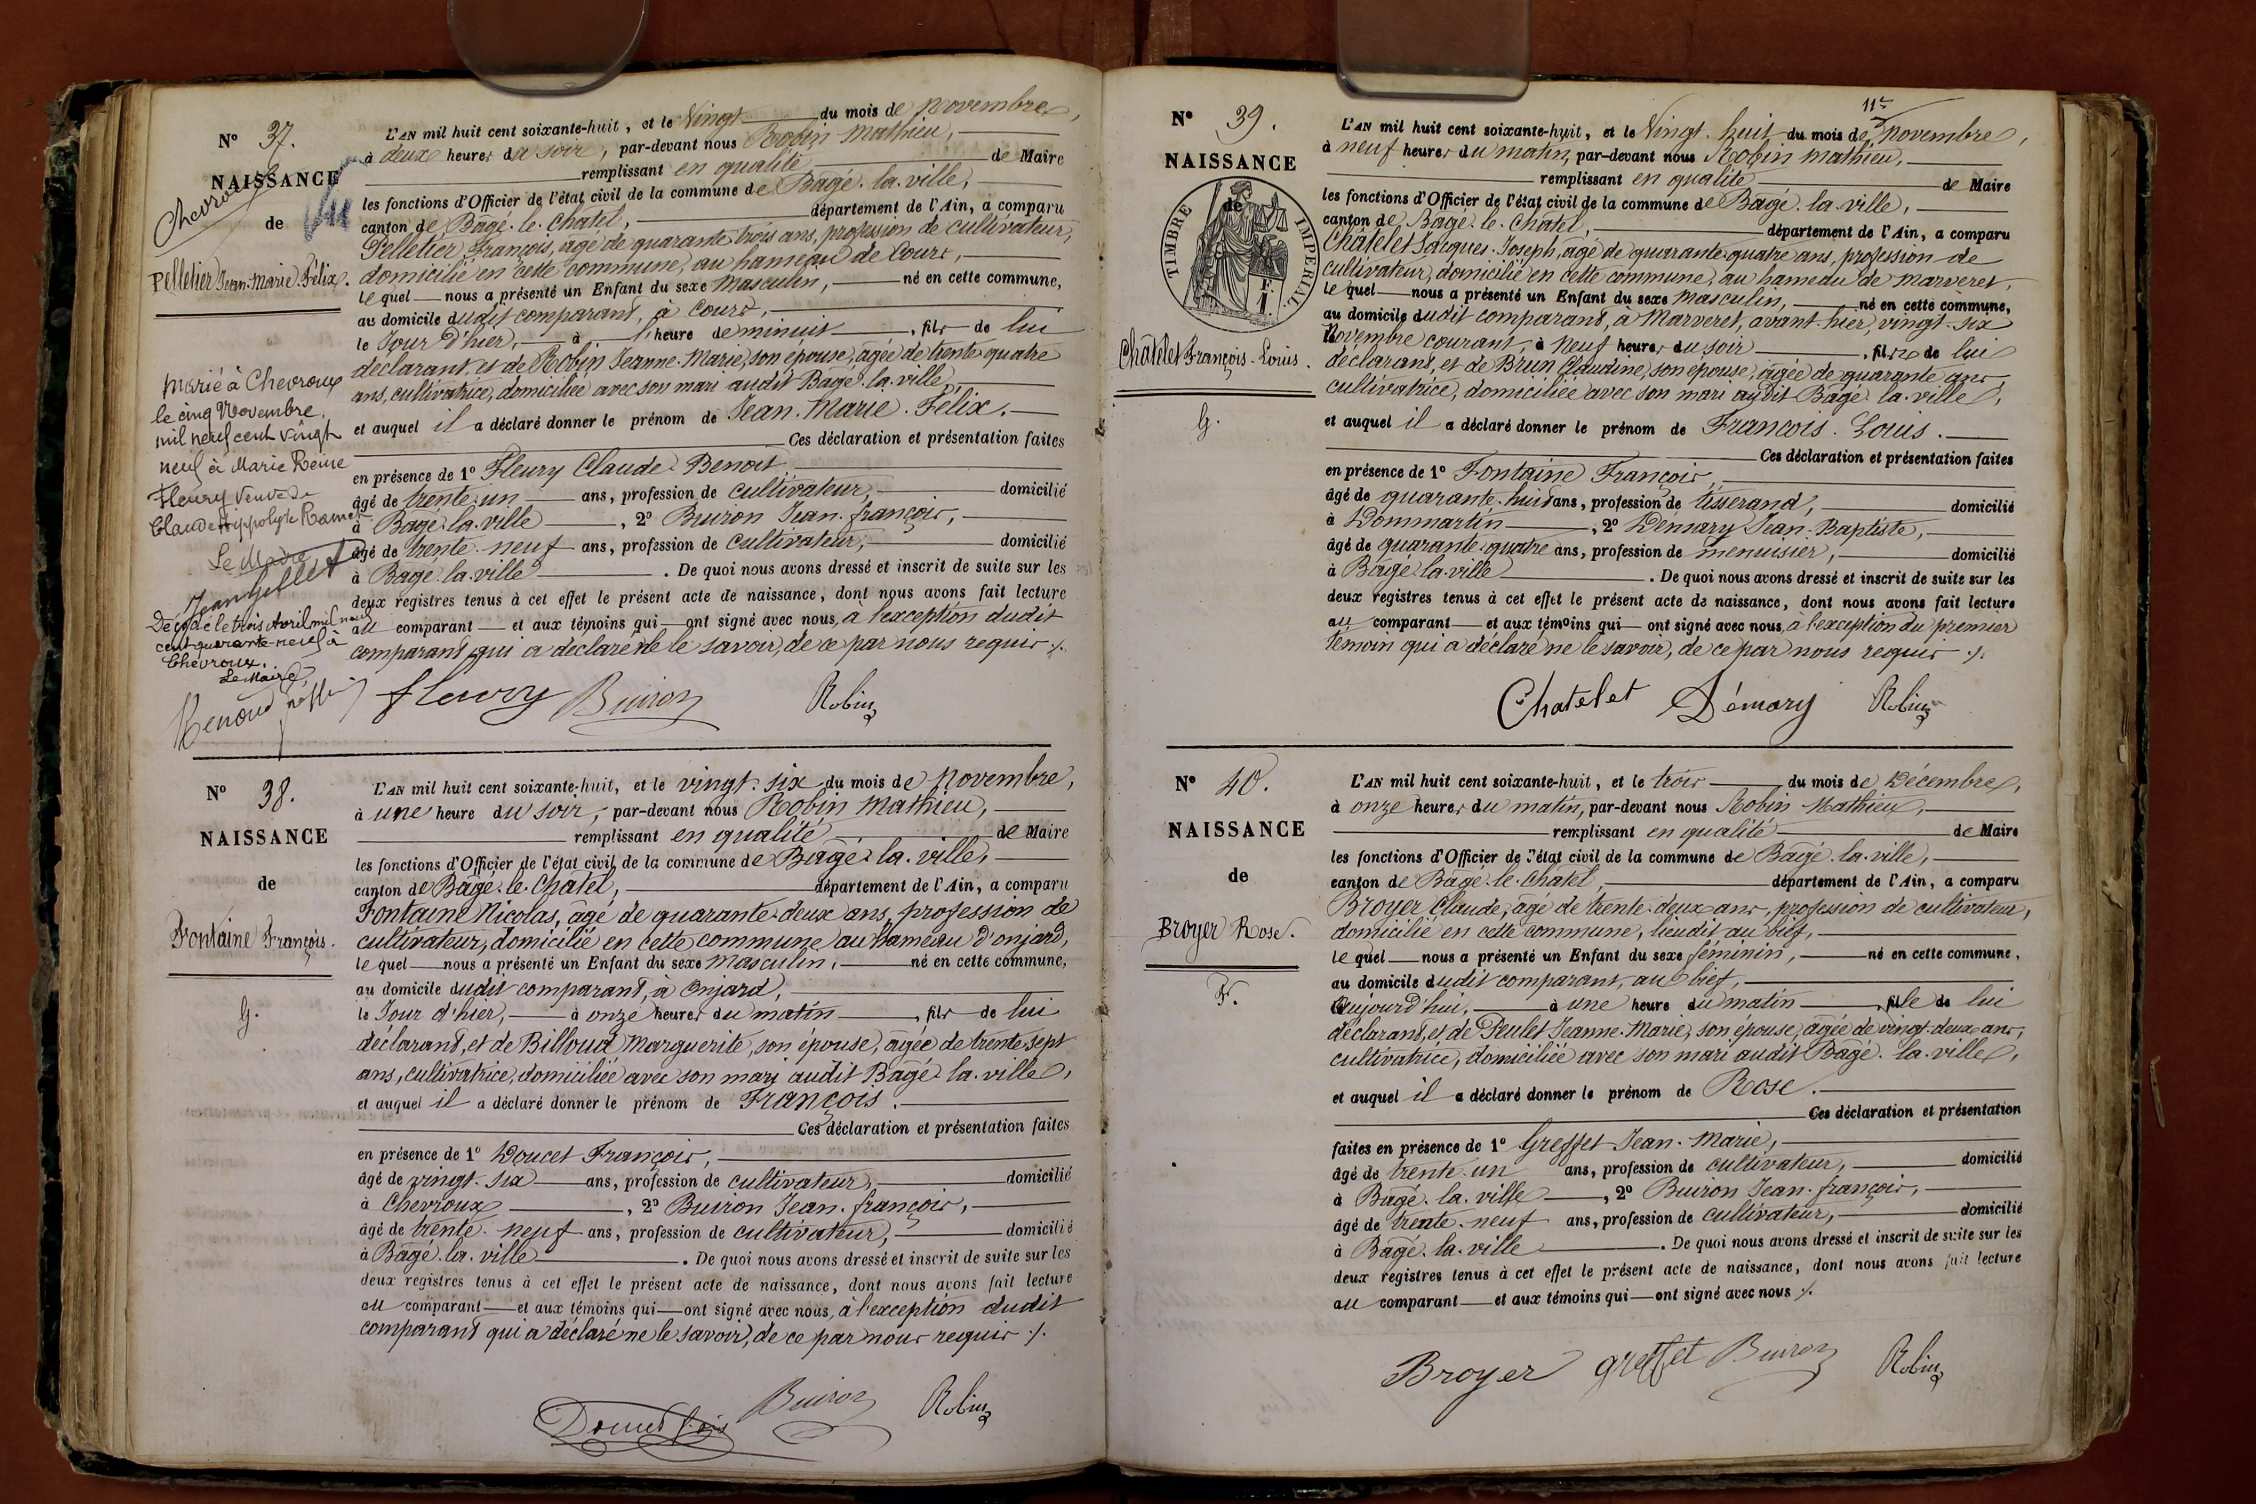 N° 37.
NAISSANCE
de
Chevroux
Pelletier Jean-Marie-Félix.
Marié à Chevroux
le cinq Novembre
mil neuf cent vingt
neuf à Marie Reine
Fleury veuve de
Claude Hippolyte
Le Maire
Décédé le trois Avril mil neuf
cent quarante-neuf à
Chevroux.
Le Maire
L'AN mil huit cent soixante-huit, et le Vingt du mois de Novembre,
à deux heures du soir, par-devant nous Robin Mathieu,
remplissant en qualité de Maire
les fonctions d'Officier de l'état civil de la commune de Bagé-la-ville,
canton de Bagé-le-Chatel, département de l'Ain, a comparu
Pelletier François, âgé de quarante trois ans, profession de cultivateur,
domicilié en cette commune, au hameau de Cours,
lequel nous a présenté un Enfant du sexe masculin, né en cette commune,
au domicile dudit comparant, à Cours,
le Jour d'hier, à heure de minuit, fils de lui
déclarant, et de Robin Jeanne-Marie, son épouse, âgée de trente quatre
ans, cultivatrice, domiciliée avec son mari audit Bagé-la-ville,
et auquel il a déclaré donner le prénom de Jean-Marie-Félix.
Ces déclaration et présentation faites
en présence de 1° Fleury Claude-Benoit,
âgé de trente-un ans, profession de cultivateur, domicilié
à Bagé-la-ville, 2° Buiron Jean-françois,
âgé de trente-neuf ans, profession de cultivateur, domicilié
à Bagé-la-ville. De quoi nous avons dressé et inscrit de suite sur les
deux registres tenus à cet effet le présent acte de naissance, dont nous avons fait lecture
au comparant et aux témoins qui ont signé avec nous, à l'exception dudit
comparant qui a déclaré ne le savoir, de ce par nous requis ./.
fleury Buiron Robin
N° 38.
NAISSANCE
de
Fontaine François.
G.
L'AN mil huit cent soixante-huit, et le vingt-six du mois de Novembre,
à une heure du soir, par-devant nous Robin Mathieu,
remplissant en qualité de Maire
les fonctions d'Officier de l'état civil de la commune de Bagé-la-ville,
canton de Bagé-le-Chatel, département de l'Ain, a comparu
Fontaine Nicolas, âgé de quarante-deux ans, profession de
cultivateur, domicilié en cette commune au hameau d'onjard,
lequel nous a présenté un Enfant du sexe Masculin, né en cette commune,
au domicile dudit comparant, à Onjard,
le Jour d'hier, à onze heures du matin, fils de lui
déclarant, et de Billoud Marguerite, son épouse, âgée de trente-sept
ans, cultivatrice, domiciliée avec son mari audit Bagé-la-ville,
et auquel il a déclaré donner le prénom de François.
Ces déclaration et présentation faites
en présence de 1° Doucet François,
âgé de vingt-six ans, profession de cultivateur, domicilié
à Chevroux, 2° Buiron Jean-françois,
âgé de trente-neuf ans, profession de cultivateur, domicilié
à Bagé-la-ville. De quoi nous avons dressé et inscrit de suite sur les
deux registres tenus à cet effet le présent acte de naissance, dont nous avons fait lecture
au comparant et aux témoins qui ont signé avec nous, à l'exception dudit
comparant qui a déclaré ne le savoir, de ce par nous requis ./.
Buiron Robin
N° 39.
NAISSANCE
de
TIMBRE IMPERIAL.
Châtelet François-Louis.
G.
L'AN mil huit cent soixante-huit, et le Vingt-huit du mois de Novembre,
à neuf heures du matin, par-devant nous Robin Mathieu,
remplissant en qualité de Maire
les fonctions d'Officier de l'état civil de la commune de Bagé-la-ville,
canton de Bagé-le-Chatel, département de l'Ain, a comparu
Châtelet Jacques-Joseph, âgé de quarante-quatre ans, profession de
cultivateur, domicilié en cette commune, au hameau de Marveret,
lequel nous a présenté un Enfant du sexe Masculin, né en cette commune,
au domicile dudit comparant, à Marveret, avant-hier, vingt-six
Novembre courant à Neuf heures du soir, fils de lui
déclarant, et de Brun Claudine, son épouse, âgée de quarante ans,
cultivatrice, domiciliée avec son mari audit Bagé-la-ville,
et auquel il a déclaré donner le prénom de François-Louis.
Ces déclaration et présentation faites
en présence de 1° Fontaine François,
âgé de quarante-huit ans, profession de tisserand, domicilié
à Dommartin, 2° Démary Jean-Baptiste,
âgé de quarante-quatre ans, profession de menuisier, domicilié
à Bagé-la-ville. De quoi nous avons dressé et inscrit de suite sur les
deux registres tenus à cet effet le présent acte de naissance, dont nous avons fait lecture
au comparant et aux témoins qui ont signé avec nous, à l'exception du premier
témoin qui a déclaré ne le savoir, de ce par nous requis ./.
Chatelet Démary Robin
N° 40.
NAISSANCE
de
Broyer Rose.
F.
L'AN mil huit cent soixante-huit, et le trois du mois de Décembre,
à onze heures du matin, par-devant nous Robin Mathieu,
remplissant en qualité de Maire
les fonctions d'Officier de l'état civil de la commune de Bagé-la-ville,
canton de Bagé-le-Chatel, département de l'Ain, a comparu
Broyer Claude, âgé de trente-deux ans, profession de cultivateur,
domicilié en cette commune, lieudit au bief,
lequel nous a présenté un Enfant du sexe féminin, né en cette commune,
au domicile dudit comparant, au bief,
Aujourd'hui, à une heure du matin, fille de lui
déclarant, et de Peulet Jeanne-Marie, son épouse, âgée de vingt-deux ans,
cultivatrice, domiciliée avec son mari audit Bagé-la-ville,
et auquel il a déclaré donner le prénom de Rose.
Ces déclaration et présentation
faites en présence de 1° Greffet Jean-Marie,
âgé de trente-un ans, profession de cultivateur, domicilié
à Bagé-la-ville, 2° Buiron Jean-françois,
âgé de trente-neuf ans, profession de cultivateur, domicilié
à Bagé-la-ville. De quoi nous avons dressé et inscrit de suite sur les
deux registres tenus à cet effet le présent acte de naissance, dont nous avons fait lecture
au comparant et aux témoins qui ont signé avec nous ./.
Broyer greffet Buiron Robin